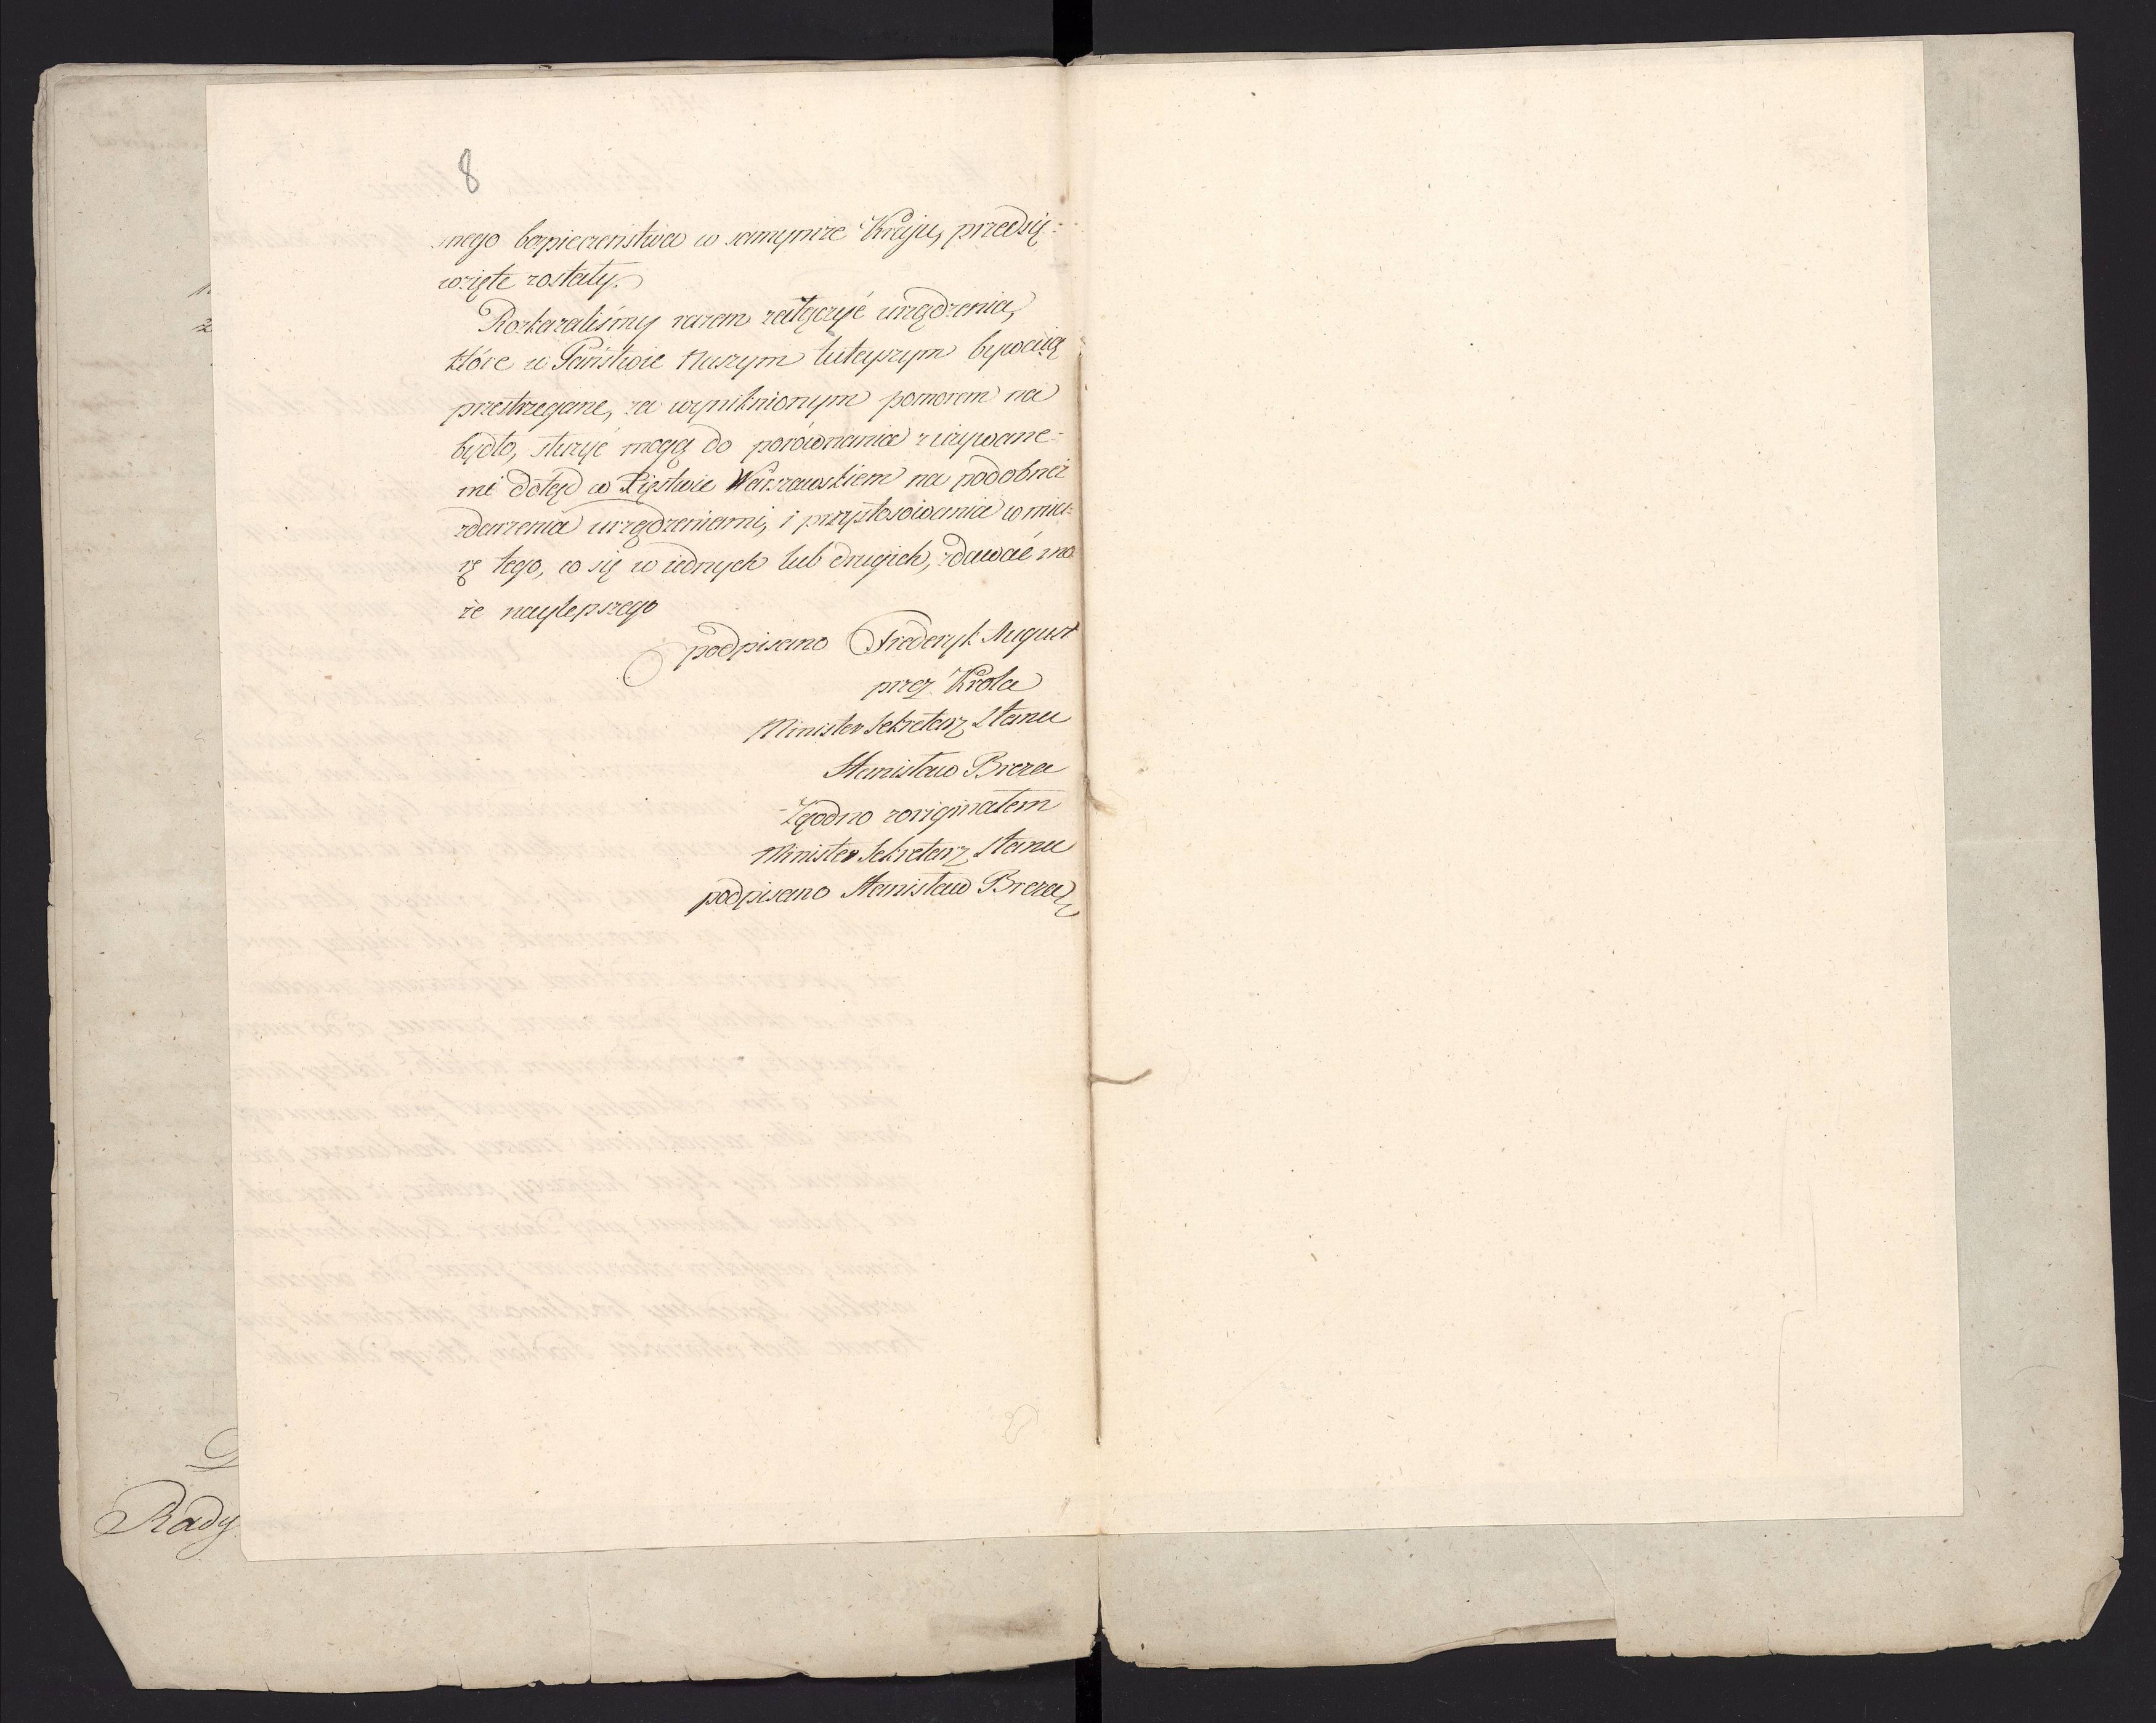 8
snego bezpieczeństwa w samymże Kraju, przedsię=
wzięte zostały.
Rozkazaliśmy razem załączyć urządzenia,
które w Państwie Naszym tuteyszym bywaią
przestrzegane, za wyniknionym pomorem na
bydło, służyć mogą do porównania z używane=
mi dotąd w Xięstwie Warszawskiem na podobneż
zdarzenia urządzeniami, i przystosowania w mia=
rę tego, co się w iednych lub drugich, zdawać mo
że naylepszego
podpisano Frederyk August
przez Krola
Minister Sekretarz Stanu
Stanisław Breza
Zgodno z originałem
Minister Sekretarz Stanu
podpisano Stanisław Breza
Rady